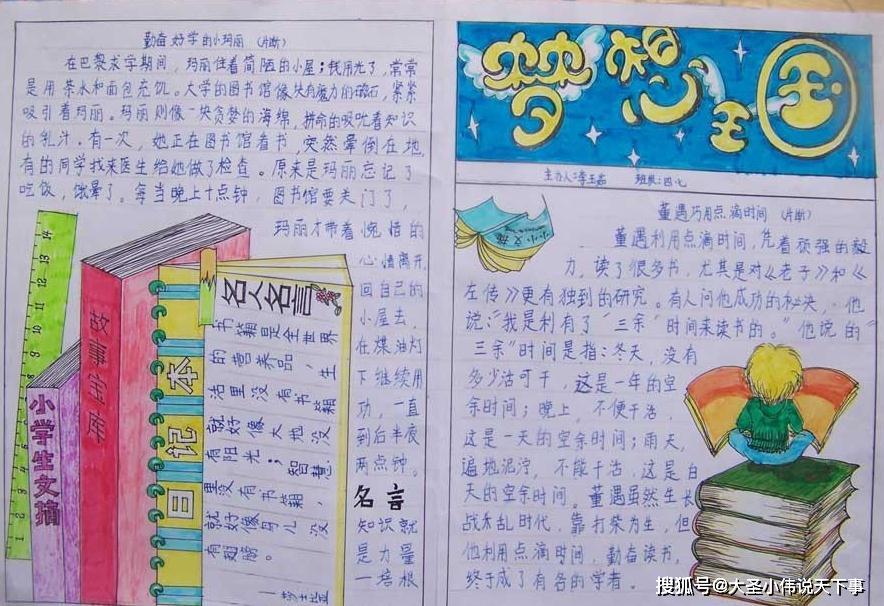 勤奋好学的小玛丽 (片断)
在巴黎求学期间,玛丽住着简陋的小屋;钱用光了,常常
是用茶水和面包充饥。大学的图书馆像块有魔力的磁石,紧紧
吸引着玛丽。玛丽则像一块贪婪的海绵,拼命的吸吮着知识
的乳汁。有一次,她正在图书馆看书,突然晕倒在地,
有的同学找来医生给她做了检查。原来是玛丽忘记了
吃饭,饿晕了。每当晚上十点钟,图书馆要关门了,
玛丽才带着惋惜的
心情离开,
回自己的
小屋去,
在煤油灯
下继续用
功,一直
到后半夜
两点钟。
名言
知识就
是力量
一培根
小学生文摘
故事宝库
日记本
名人名言
书籍是全世界
的营养品,生
活里没有书籍
就好像大地没
有阳光;智慧
里没有书籍,
就好像鸟儿没
有翅膀。
—莎士亚
梦想王国
主办人:李玉嘉 班级:四.七
小小文摘
董遇巧用点滴时间 (片断)
董遇利用点滴时间,凭着顽强的毅
力,读了很多书,尤其是对《老子》和《
左传》更有独到的研究。有人问他成功的秘诀,他
说:“我是利有了“三余”时间来读书的。”他说的“
三余”时间是指:冬天,没有
多少活可干,这是一年的空
余时间;晚上,不便干活,
这是一天的空余时间;雨天,
遍地泥泞,不能干活,这是白
天的空余时间。董遇虽然生长
战木乱时代,靠打柴为生,但
他利用点滴时间,勤奋读书,
终于成了有名的学者。
搜狐号@大圣小伟说天下事